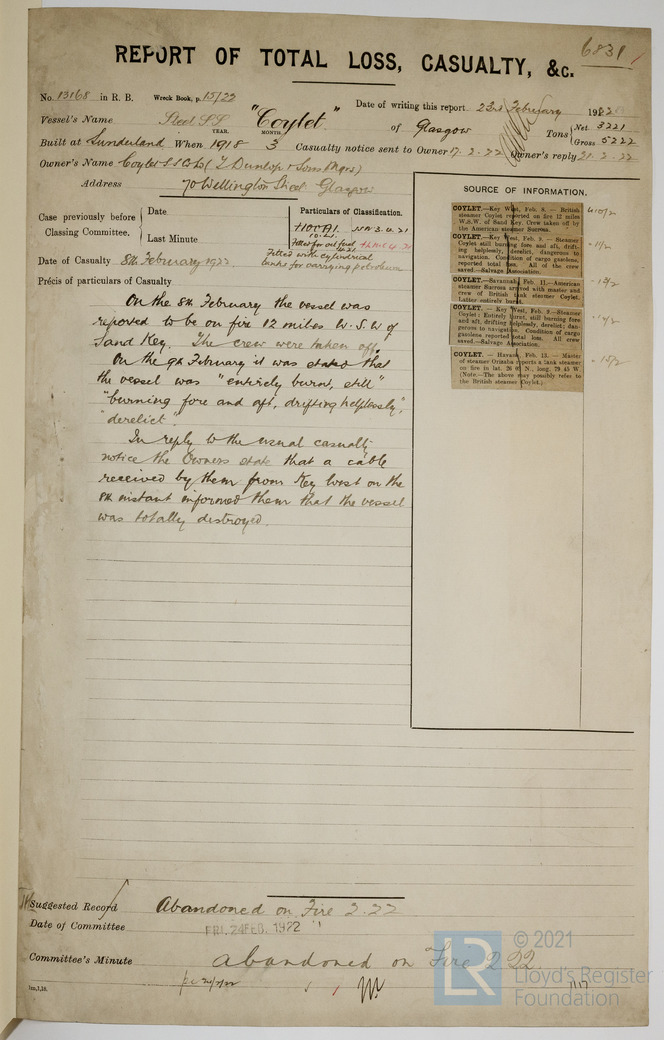 6831
REPORT OF TOTAL LOSS, CASUALTY, &c.
No. 13168 in R. B. Wreck Book, p. 15/22
Date of writing this report 23rd February 1922
Vessel's Name Steel SS "Coylet" of Glasgow
YEAR. MONTH.
Tons Net 3221
Gross 5222
Built at Sunderland When 1918 3 Casualty notice sent to Owner 17.2.22 Owner's reply 21.2.22
Owner's Name Coylet SS Co Ld (T Dunlop & Sons Mgrs)
Address 70 Wellington Street Glasgow
Case previously before
Classing Committee.
Date
Last Minute
Particulars of Classification.
+100A1.
fitted for oil fuel
Fitted with cylindrical
tanks for carrying petroleum
Date of Casualty 8th February 1922
Précis of particulars of Casualty
On the 8th February the vessel was
reported to be on fire 12 miles W.S.W of
Sand Key. The crew were taken off.
On the 9th February it was stated that
the vessel was "entirely burnt, still"
"burning fore and aft, drifting helplessly",
"derelict".
In reply to the usual casualty
notice the Owners state that a cable
received by them from Key West on the
8th instant informed them that the vessel
was totally destroyed.
SOURCE OF INFORMATION.
COYLET.—Key West, Feb. 8. — British
steamer Coylet reported on fire 12 miles
W.S.W. of Sand Key. Crew taken off by
the American steamer Sucrosa.
COYLET.—Key West, Feb. 9. — Steamer
Coylet still burning fore and aft, drift-
ing helplessly, derelict, dangerous to
navigation. Condition of cargo gasolene,
reported total loss. All of the crew
saved.—Salvage Association.
COYLET.—Savannah, Feb. 11.—American
steamer Sucrosa arrived with master and
crew of British tank steamer Coylet.
Latter entirely burnt.
COYLET.—Key West, Feb. 9.—Steamer
Coylet: Entirely burnt, still burning fore
and aft, drifting helplessly, derelict; dan-
gerous to navigation. Condition of cargo
gasolene reported total loss. All crew
saved.—Salvage Association.
COYLET. — Havana, Feb. 13. — Master
of steamer Orizaba reports a tank steamer
on fire in lat. 26 07 N., long. 79 45 W
(Note.—The above may possibly refer to
the British steamer Coylet.)
Suggested Record Abandoned on Fire 2.22
Date of Committee FRI. 24 FEB. 1922
Committee's Minute abandoned on Fire 2.22
© 2021
Lloyd's Register
Foundation
LR